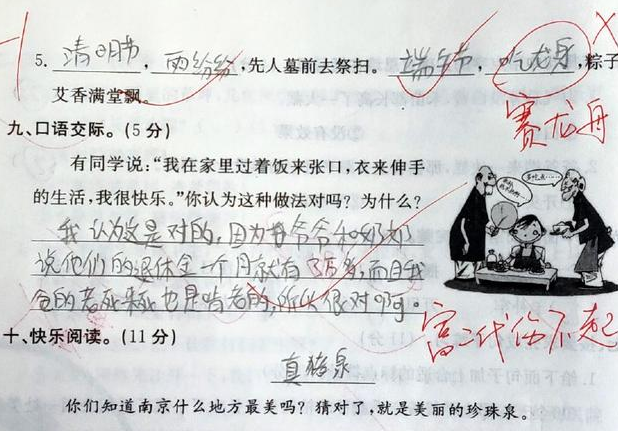 5. 清明节, 雨纷纷,先人墓前去祭扫。 端午节, 吃龙舟,粽子
艾香满堂飘。
赛龙舟
九、口语交际。(5分)
有同学说:“我在家里过着饭来张口,衣来伸手
的生活,我很快乐。”你认为这种做法对吗?为什么?
我认为这是对的,因为我爷爷和奶奶
说他们的退休金一个月就有3万多,而且我
爸爸也是啃老的,所以很对啊。
富二代伤不起
十、快乐阅读。(11分)
真梅泉
你们知道南京什么地方最美吗?猜对了,就是美丽的珍珠泉。